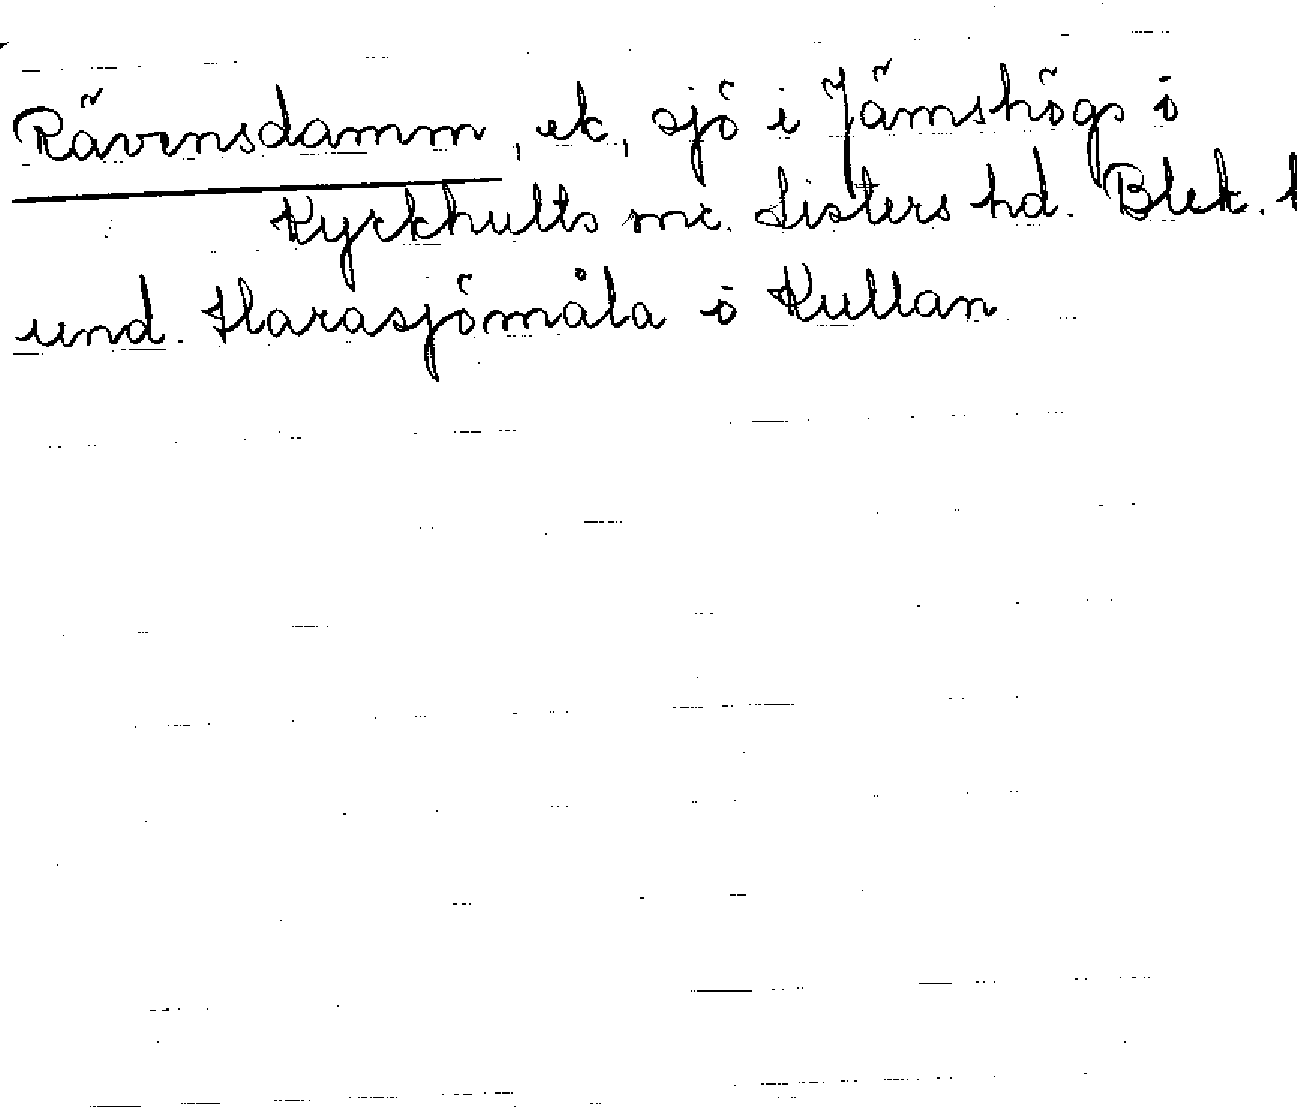 Rävensdamm, ek, sjö i Jämshögs o
Kyrkhults snr. Listers hd. Blek. l
und. Harasjömåla o Kullan